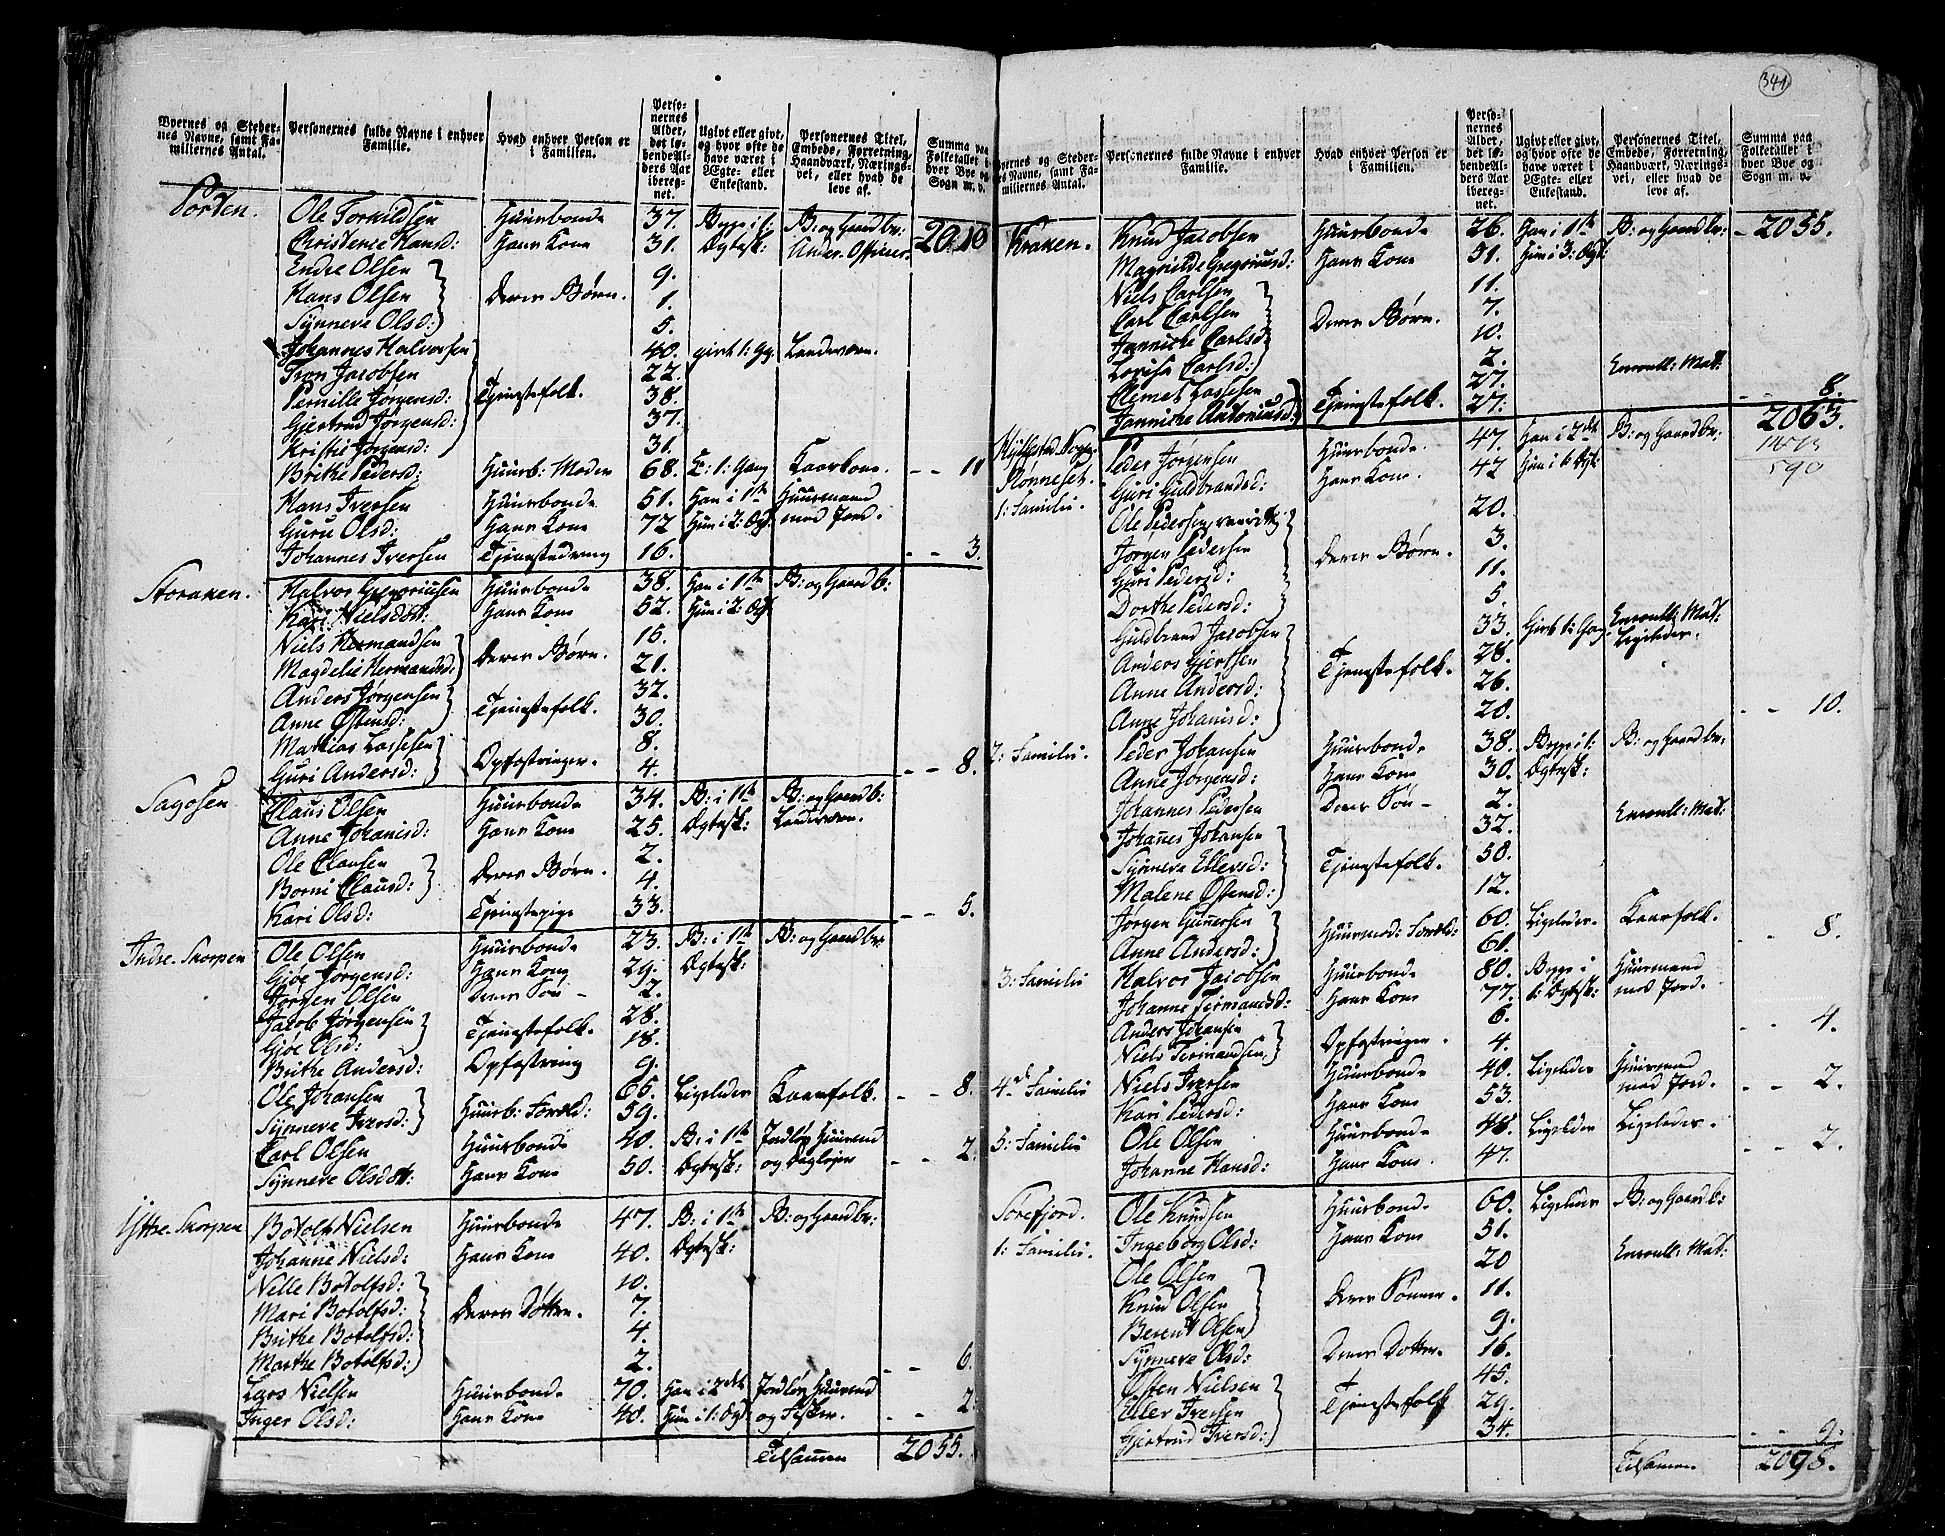 341
Byernes og Steder-
nes Navne, samt Fa-
miliernes Antal.
Personernes fulde Navne i enhver
Familie.
Hvad enhver Person er
i Familien.
Perso-
nernes
Alder,
det lø-
bende Al-
ders Aar
iberegnet.
Ugivt eller givt,
og hvor ofte de
have været i
Ægte- eller
Enkestand.
Personernes Titel,
Embede, Forretning,
Haandværk, Nærings-
vei, eller hvad de
leve af.
Summa paa
Folketallet i
hver Bye og
Sogn m. v.
Porten.
Ole Tormildsen Huusbonde 37. Begge i 1: B: og Gaardbr:
Christence Hansd: Hans Kone 31. Ægtesk: Under-Officeer. 2010
Endre Olsen 9.
Hans Olsen Deres Børn. 1.
Synneve Olsd: 5.
Johannes Halvorsen 40. givt 1: Gg. Landeværn.
Tron Jacobsen 22.
Pernille Jørgensd: Tjenestefolk. 38.
Gjertrud Jørgensd: 37.
Kristie Jørgensd: 31.
Brithe Pedersd: Huusb: Moder 68. E: 1: Gang Kaarkone. - - 11
Hans Iversen Huusbonde 51. Han i 1ste Huusmand
Guru Olsd: Hans Kone 72 Hun i 2: Ægt. med Jord.
Johannes Iversen Tjenestedreng 16. - - 3.
Storaken. Halvor Gregoriusen Huusbonde 38. Han i 1ste B: og Gaardb:
Kari Nielsdot: Hans Kone 52. Hun i 2: Ægt
Niels Hermandsen 16.
Magdelie Hermandsd: Deres Børn. 21.
Anders Jørgensen 32.
Anne Østensd: Tjenestefolk. 30.
Mathias Lassesen 8.
Guri Andersd: Opfostringer. 4. - - 8.
Sagosen Claus Olsen Huusbonde 34. B: i 1ste B: og Gaardb:
Anne Johanisd: Hans Kone 25. Ægtesk: Landeværn.
Ole Clausen 2.
Borni Clausd: Deres Børn. 4.
Kari Olsd: Tjenestepige 33. - - 5.
Indre Skorpen Ole Olsen Huusbonde 23. B: i 1ste B: og Gaardbr:
Gjøe Jørgensd: Hans Kone 29. Ægtesk:
Jørgen Olsen Deres Søn - 2.
Jacob Jørgensen 28.
Gjøe Olsd: Tjenestefolk. 18.
Brithe Andersd: Opfostring 9.
Ole Johansen 65. Ligeledes Kaarfolk. - - 8.
Synneve Iversd: Huusb: Foreld: 59.
Carl Olsen Huusbonde 40. B: i 1ste Jordløs Huusmd
Synneve Olsdot: Hans Kone 50. Ægtesk: og Daglejer - - 2.
Ytre Skorpen Botolph Nielsen Huusbonde 47. B: i 1ste B: og Gaardbr:
Johanne Nielsd: Hans Kone 40. Ægtesk:
Nelle Botolfsd: 10.
Mari Botolfsd: Deres Døttre. 7.
Brithe Botolfsd: 4.
Marthe Botolfsd: 2. - - 6.
Lars Nielsen Huusbonde 70. Han i 2det Jordløs Huusmd
Inger Olsd: Hans Kone 48. Hun i 1: Ægt og Fisker. - - 2
Tilsamen 2055.
Byernes og Steder-
nes Navne, samt Fa-
miliernes Antal.
Personernes fulde Navne i enhver
Familie.
Hvad enhver Person er
i Familien.
Perso-
nernes
Alder,
det lø-
bende Al-
ders Aar
iberegnet.
Ugivt eller givt,
og hvor ofte de
have været i
Ægte- eller
Enkestand.
Personernes Titel,
Embede, Forretning,
Haandværk, Nærings-
vei, eller hvad de
leve af.
Summa paa
Folketallet i
hver Bye og
Sogn m. v.
Kraken. Knud Jacobsen Huusbonde 26. Han i 1ste B: og Gaardbr: - 2055.
Magnilde Gregoriusd: Hans Kone 31. Hun i 3: Ægt:
Niels Carlsen 11.
Carl Carlsen Deres Børn. 7.
Janniche Carlsd: 10.
Lovisa Carlsd: 2.
Clemet Lassesen 27. Enroull: Mat:
Janniche Antoniusd: Tjenestefolk. 27. - - 8.
2063.
1473
590
Rønneset. Peder Jørgensen Huusbonde 47. Han i 2det B: og Gaardbr:
1: Familie Guri Guldbrandsd: Hans Kone 42 Hun i 1: Ægt:
Ole Pedersen, 20.
Jørgen Pedersen 3.
Guri Pedersd: Deres Børn. 11.
Dorthe Pedersd: 5.
Guldbrand Jacobsen 33. Givt 1: Gang. Enroull: Mat:
Anders Gjertsen 28. Ligeledes.
Anne Andersd: Tjenestefolk. 26.
Anne Johanisd: 20. - - 10.
2: Familie. Peder Johansen Huusbonde 38. Begge i 1: B: og Gaardbr:
Anne Jørgensd: Hans Kone 30. Ægtesk:
Johannes Pedersen Deres Søn - 2.
Johanes Johansen 32. Enroull: Mat:
Synneve Ellersd: Tjenestefolk. 50.
Malene Østensd: 12.
Jørgen Gunnersen 60. Ligeledes. Kaarfolk.
Anne Andersd: Huusmod: Foreld: 61. - - 8.
3: Familie Halvor Jacobsen Huusbonde 80. Begge i Huusmand
Johanne Termandsd: Hans Kone 77. 1: Ægtesk: med Jord.
Anders Johansen 6.
Niels Termandsen, Opfostringer. 4. - - 4.
4de Familie Niels Iversen Huusbonde 40. Ligeledes Huusmand
Kari Pedersd: Hans Kone 53. med Jord. - - 2.
5: Familie Ole Olsen Huusbonde 48. Ligeledes Ligeledes.
Johanne Hansd: Hans Kone. 47. - - 2.
Sørefjord. Ole Knudsen Huusbonde 60. Ligeledes B: og Gaardb:
1: Familie. Ingeborg Olsd: Hans Kone 51.
Ole Olsen 20 Enroull: Mat:
Knud Olsen Deres Sønner. 11.
Berent Olsen 9.
Synneve Olsd: Deres Dotter. 16.
Østen Nielsen 45.
Eller Iversen Tjenestefolk 29.
Gjertrud Iversd: 34. - - 9.
Tilsamen 2098.